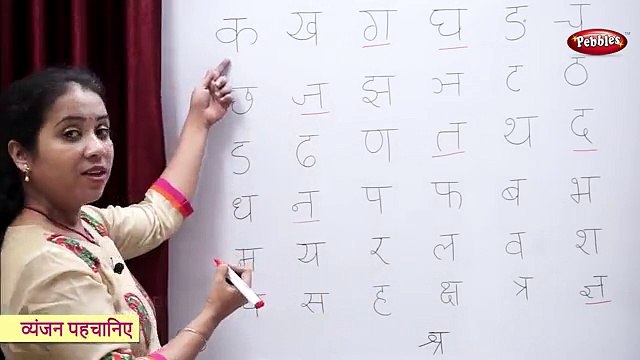 क ख ग घ ङ च
Pebbles
छ ज झ ञ ट ठ
ड ढ ण त थ द
ध न प फ ब भ
म य र ल व श
ष स ह क्ष त्र ज्ञ
श्र
व्यंजन पहचानिए